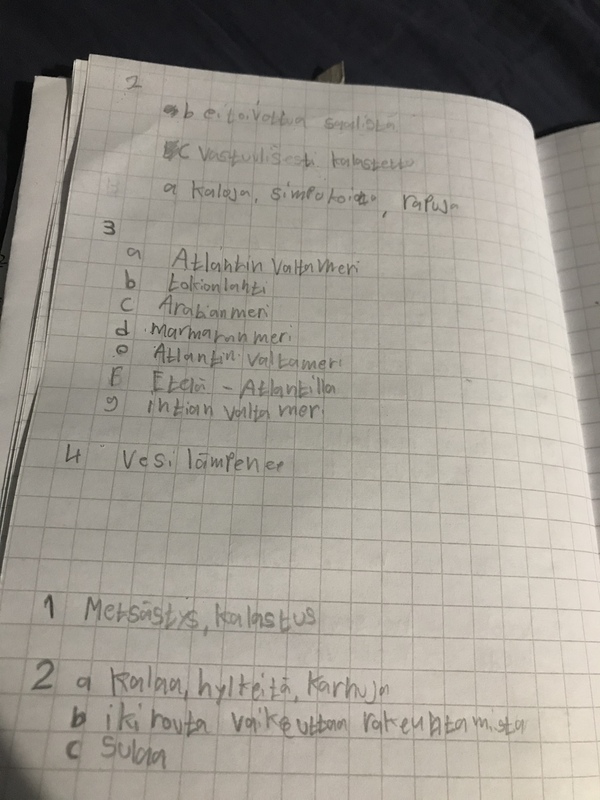 2
b ei toivottua saalista
c vastuullisesti kalastettu
a kaloja, simpukoita, rapuja
3
a Atlantin valtameri
b tokionlahti
c Arabianmeri
d marmaranmeri
e Atlantin valtameri
f Etelä - Atlantilla
g intian valtameri
4 Vesi lämpenee
1 Metsästys, kalastus
2 a kalaa, hylkeitä, karhuja
b ikirouta vaikeuttaa rakentamista
c Sulaa